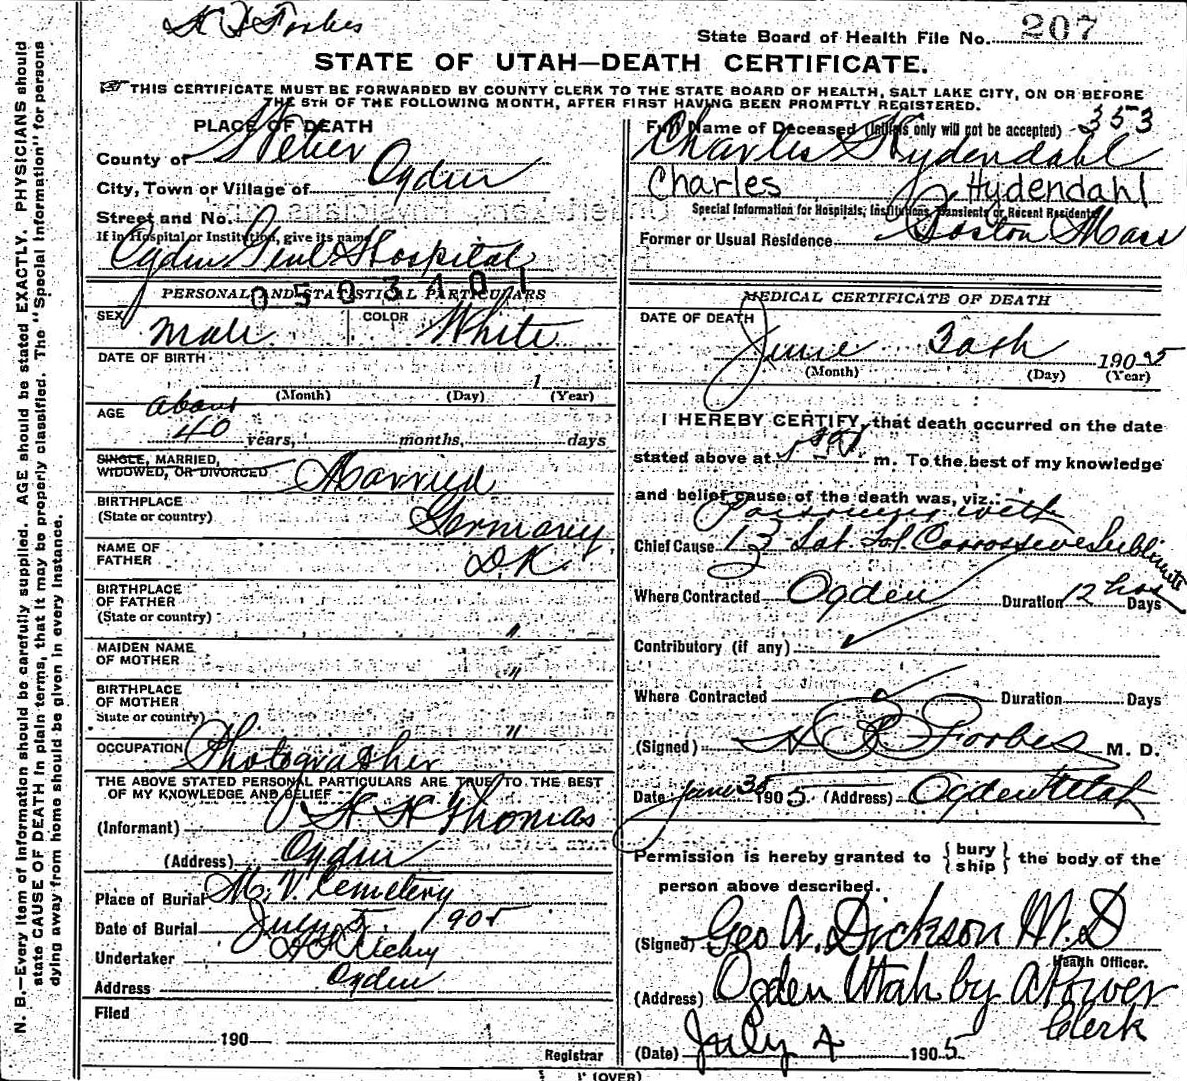 State Board of Health File No. 207
STATE OF UTAH—DEATH CERTIFICATE.
THIS CERTIFICATE MUST BE FORWARDED BY COUNTY CLERK TO THE STATE BOARD OF HEALTH, SALT LAKE CITY, ON OR BEFORE
THE 5TH OF THE FOLLOWING MONTH, AFTER FIRST HAVING BEEN PROMPTLY REGISTERED.
PLACE OF DEATH
County of Weber
City, Town or Village of Ogden
Street and No.
If in Hospital or Institution, give its name
Ogden Genl Hospital
0503401
PERSONAL AND STATISTICAL PARTICULARS
SEX Male COLOR White
DATE OF BIRTH
1
(Month) (Day) (Year)
AGE about
40 years, months, days
SINGLE, MARRIED,
WIDOWED, OR DIVORCED Married
BIRTHPLACE
(State or country) Germany
NAME OF
FATHER D.K.
BIRTHPLACE
OF FATHER
(State or country) "
MAIDEN NAME
OF MOTHER "
BIRTHPLACE
OF MOTHER
State or country) "
OCCUPATION Photographer
THE ABOVE STATED PERSONAL PARTICULARS ARE TRUE TO THE BEST
OF MY KNOWLEDGE AND BELIEF
(Informant) Thomas
(Address) Ogden
Place of Burial M. V. Cemetery
Date of Burial July 5 1905
Undertaker
Address Ogden
Filed
190
Registrar
Full Name of Deceased (Initials only will not be accepted) 353
Charles Hydendahl
Charles Hydendahl
Special Information for Hospitals, Institutions, Transients or Recent Residents
Former or Usual Residence Boston Mass
MEDICAL CERTIFICATE OF DEATH
DATE OF DEATH
June 190
(Month) (Day) (Year)
I HEREBY CERTIFY, that death occurred on the date
stated above at m. To the best of my knowledge
and belief cause of the death was, viz.:
Poisoning with
Chief Cause Sat. Sol. Corrosive Sublimate
Where Contracted Ogden Duration 12 hrs Days
Contributory (if any)
Where Contracted Duration Days
(Signed) Forbes M. D.
Date June 1905 (Address) Ogden Utah
Permission is hereby granted to { bury
ship } the body of the
person above described.
(Signed) Geo A. Dickson M.D
Health Officer.
(Address) Ogden Utah by
Clerk
(Date) July 4 1905
(OVER)
N. B.—Every item of information should be carefully supplied. AGE should be stated EXACTLY. PHYSICIANS should
state CAUSE OF DEATH in plain terms, that it may be properly classified. The "Special Information" for persons
dying away from home should be given in every instance.